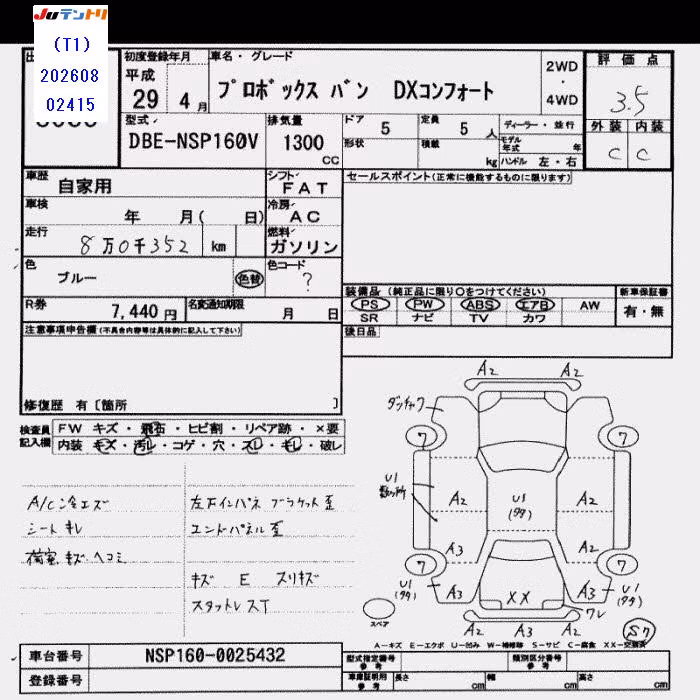 Juテントリ
(T1)
202608
02415
初度登録年月
車名・グレード
平成
29 4月
プロボックス バン DXコンフォート
2WD
・
4WD
評価点
3.5
外装 内装
C C
型式
DBE-NSP160V
排気量
1300
CC
ドア 5
定員 5人
ディーラー・並行
形状
積載 kg
モデル年式 年
ハンドル 左・右
車歴 自家用
シフト FAT
セールスポイント(正常に機能するものに限ります)
車検 年 月( 日)
冷房 AC
走行 8万0千352 km
燃料 ガソリン
色 ブルー 色替
色コード ?
装備品 (純正品に限り○をつけてください)
新車保証書
PS PW ABS エアB AW
有・無
SR ナビ TV カワ
R券 7,440円
名変通知期限 月 日
注意事項申告欄 (不具合内容等は具体的に記入して下さい)
後日品
修復歴 有〔箇所 〕
検査員記入欄
FW キズ・飛石・ヒビ割・リペア跡・×要
内装 キズ・汚レ・コゲ・穴・スレ・キレ・破レ
A/C冷エズ
シートキレ
荷室キズヘコミ
左下インパネ ブラケット歪
エンドパネル歪
キズ E スリキズ
スタットレスT
A2 A2
ダッチャク
A2
7 7
U1
数ヶ所
A2
U1
(タタ)
A2
A3 A2
7 7
U1
(タタ)
A3
XX
A3
U1
(タタ)
ワレ
A2 A3 A2
スペア
S7
A-キズ E-エクボ U-凹み W-補修跡 S-サビ C-腐食 XX-交換済
車台番号 NSP160-0025432
型式指定番号 参考
類別区分番号 参考
登録番号
車庫証明用 参考
長さ cm
幅 cm
高さ cm